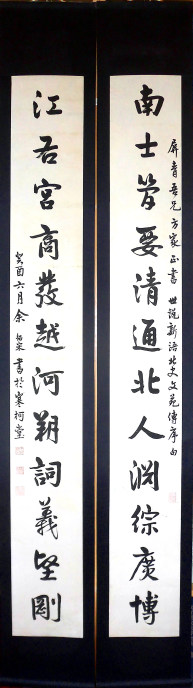 屏青吾兄方家正書 世說新語北史文苑傳序句
南士皆要清通北人淵綜廣博
江右宮商發越河朔詞義堅剛
癸酉六月余紹宋書於寒柯堂